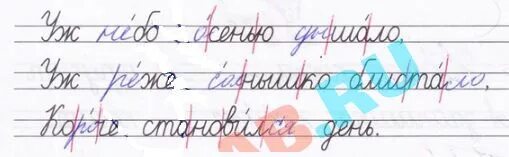 Уж небо осенью дышало,
Уж реже солнышко блистало,
Короче становился день.